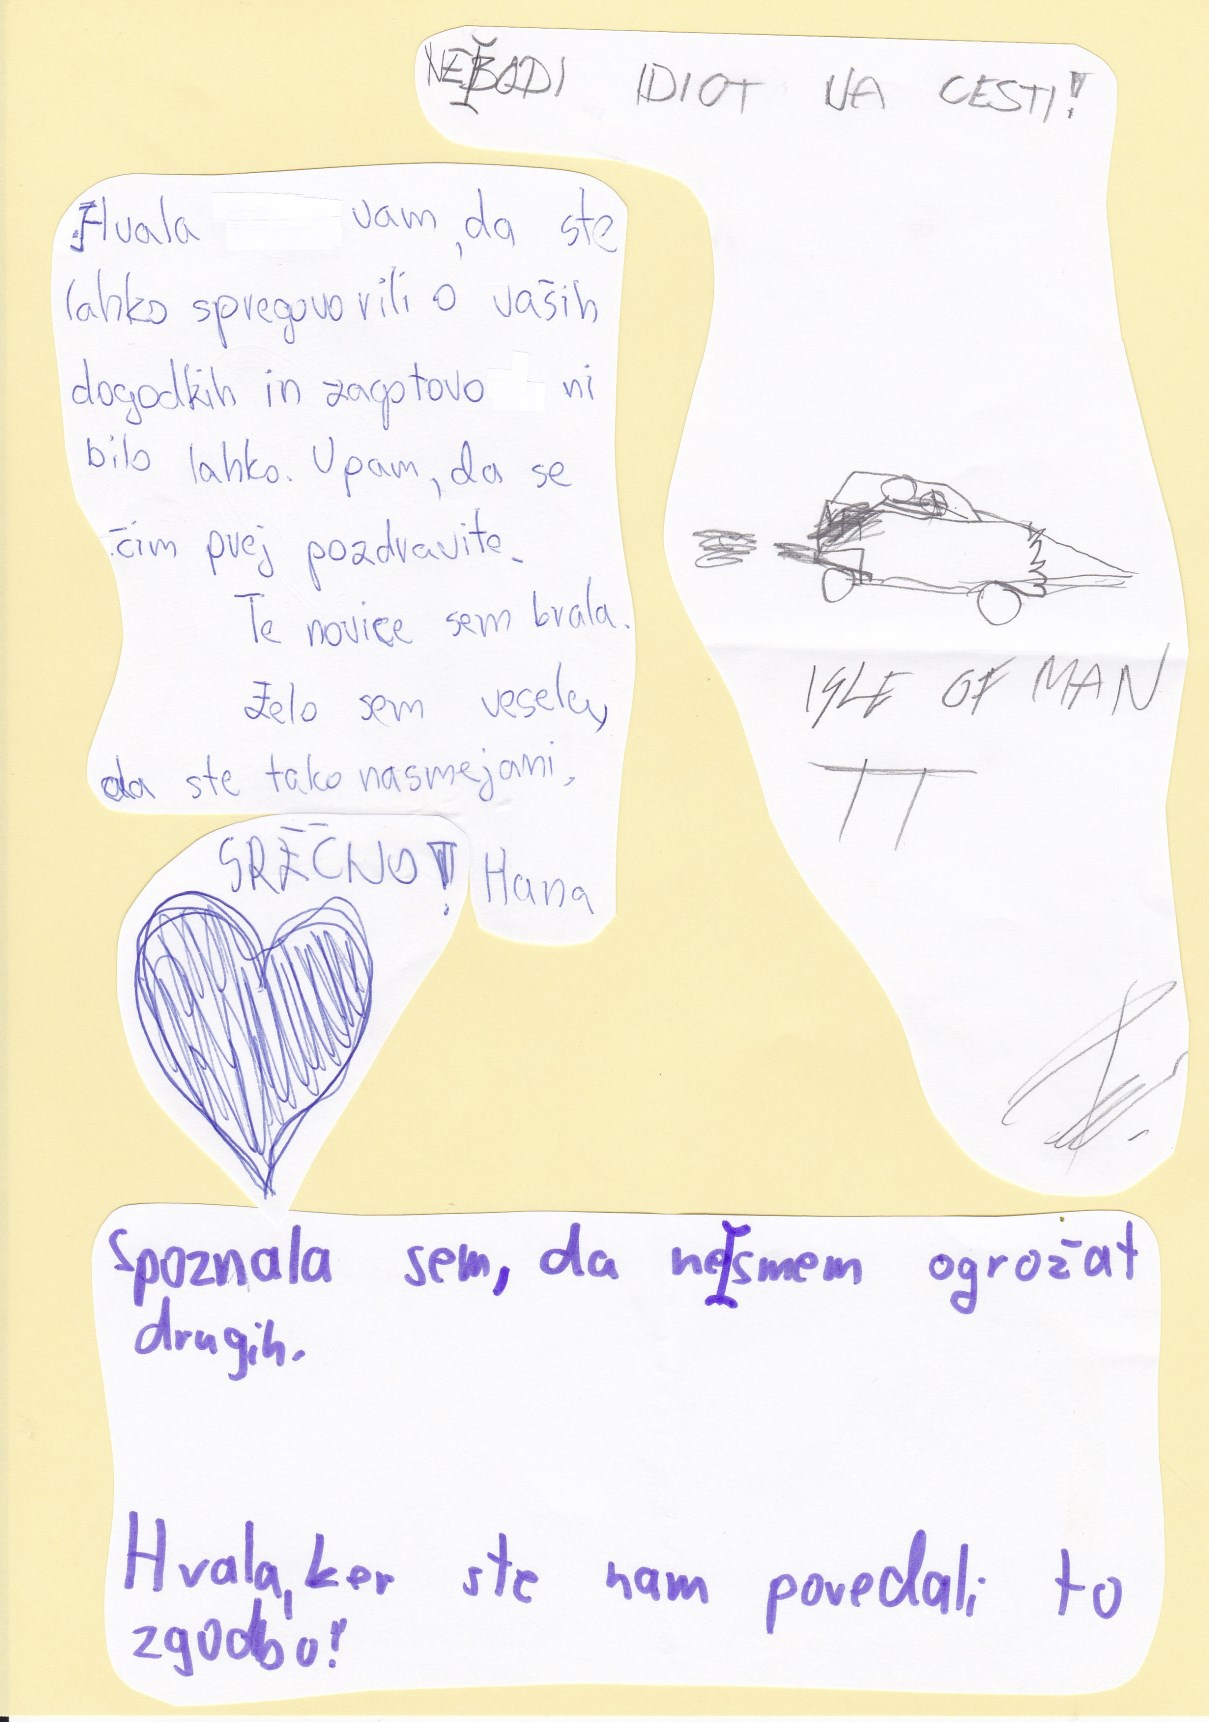 NE BODI IDIOT NA CESTI!
Hvala vam, da ste
lahko spregovorili o vaših
dogodkih in zagotovo ni
bilo lahko. Upam, da se
čim prej pozdravite.
Te novice sem brala.
Zelo sem vesela,
da ste tako nasmejani,
SREČNO! Hana
ISLE OF MAN
TT
Spoznala sem, da nesmem ogrožat
drugih.
Hvala, ker ste nam povedali to
zgodbo!